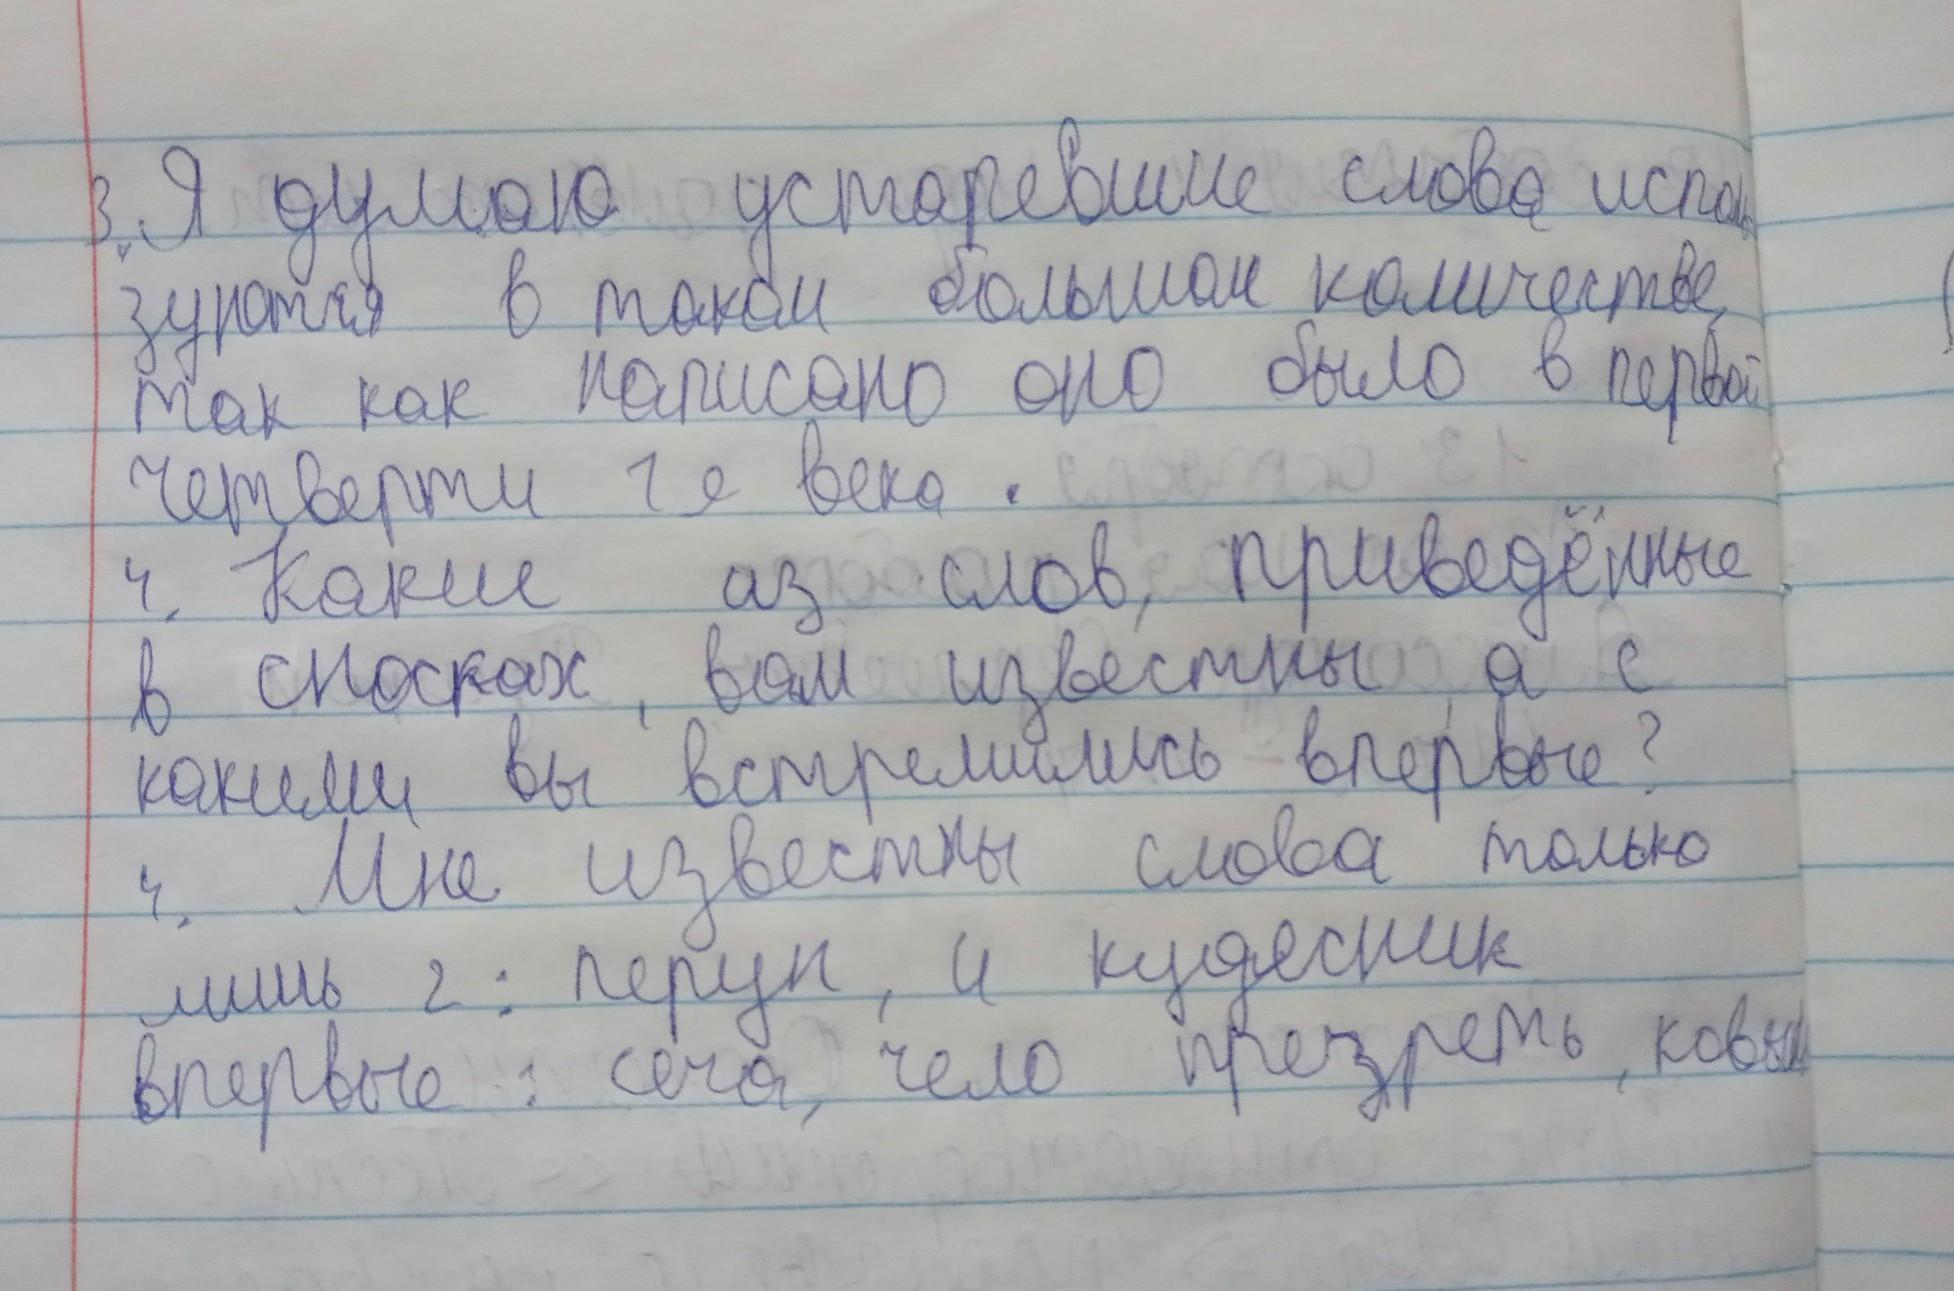 3. Я думаю устаревшие слова исполь
зуются в таком большом количестве,
так как написано оно было в первой
четверти 1 е века.
4. Какие аз слов, приведённые
в сносках, вам известны, а с
какими вы встремились впервые?
4. Мне известны слова только
лишь 2: перун, и кудесник
впервые: сеча, чело презреть, ковыль